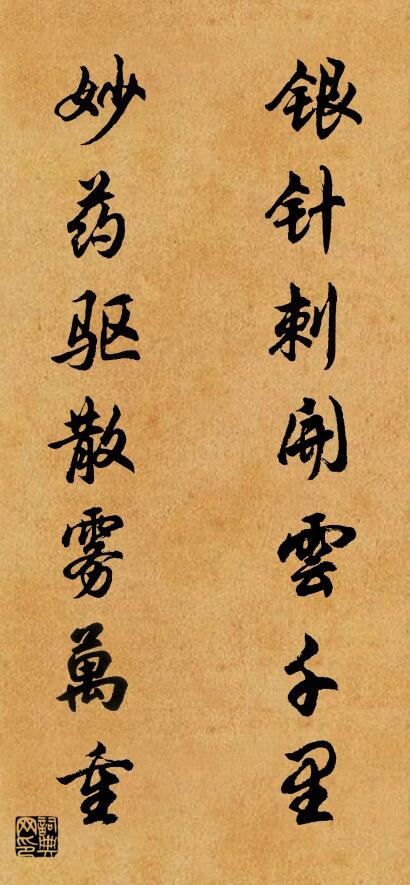 银针刺開雲千里
妙药驱散雾萬重
詞典网印